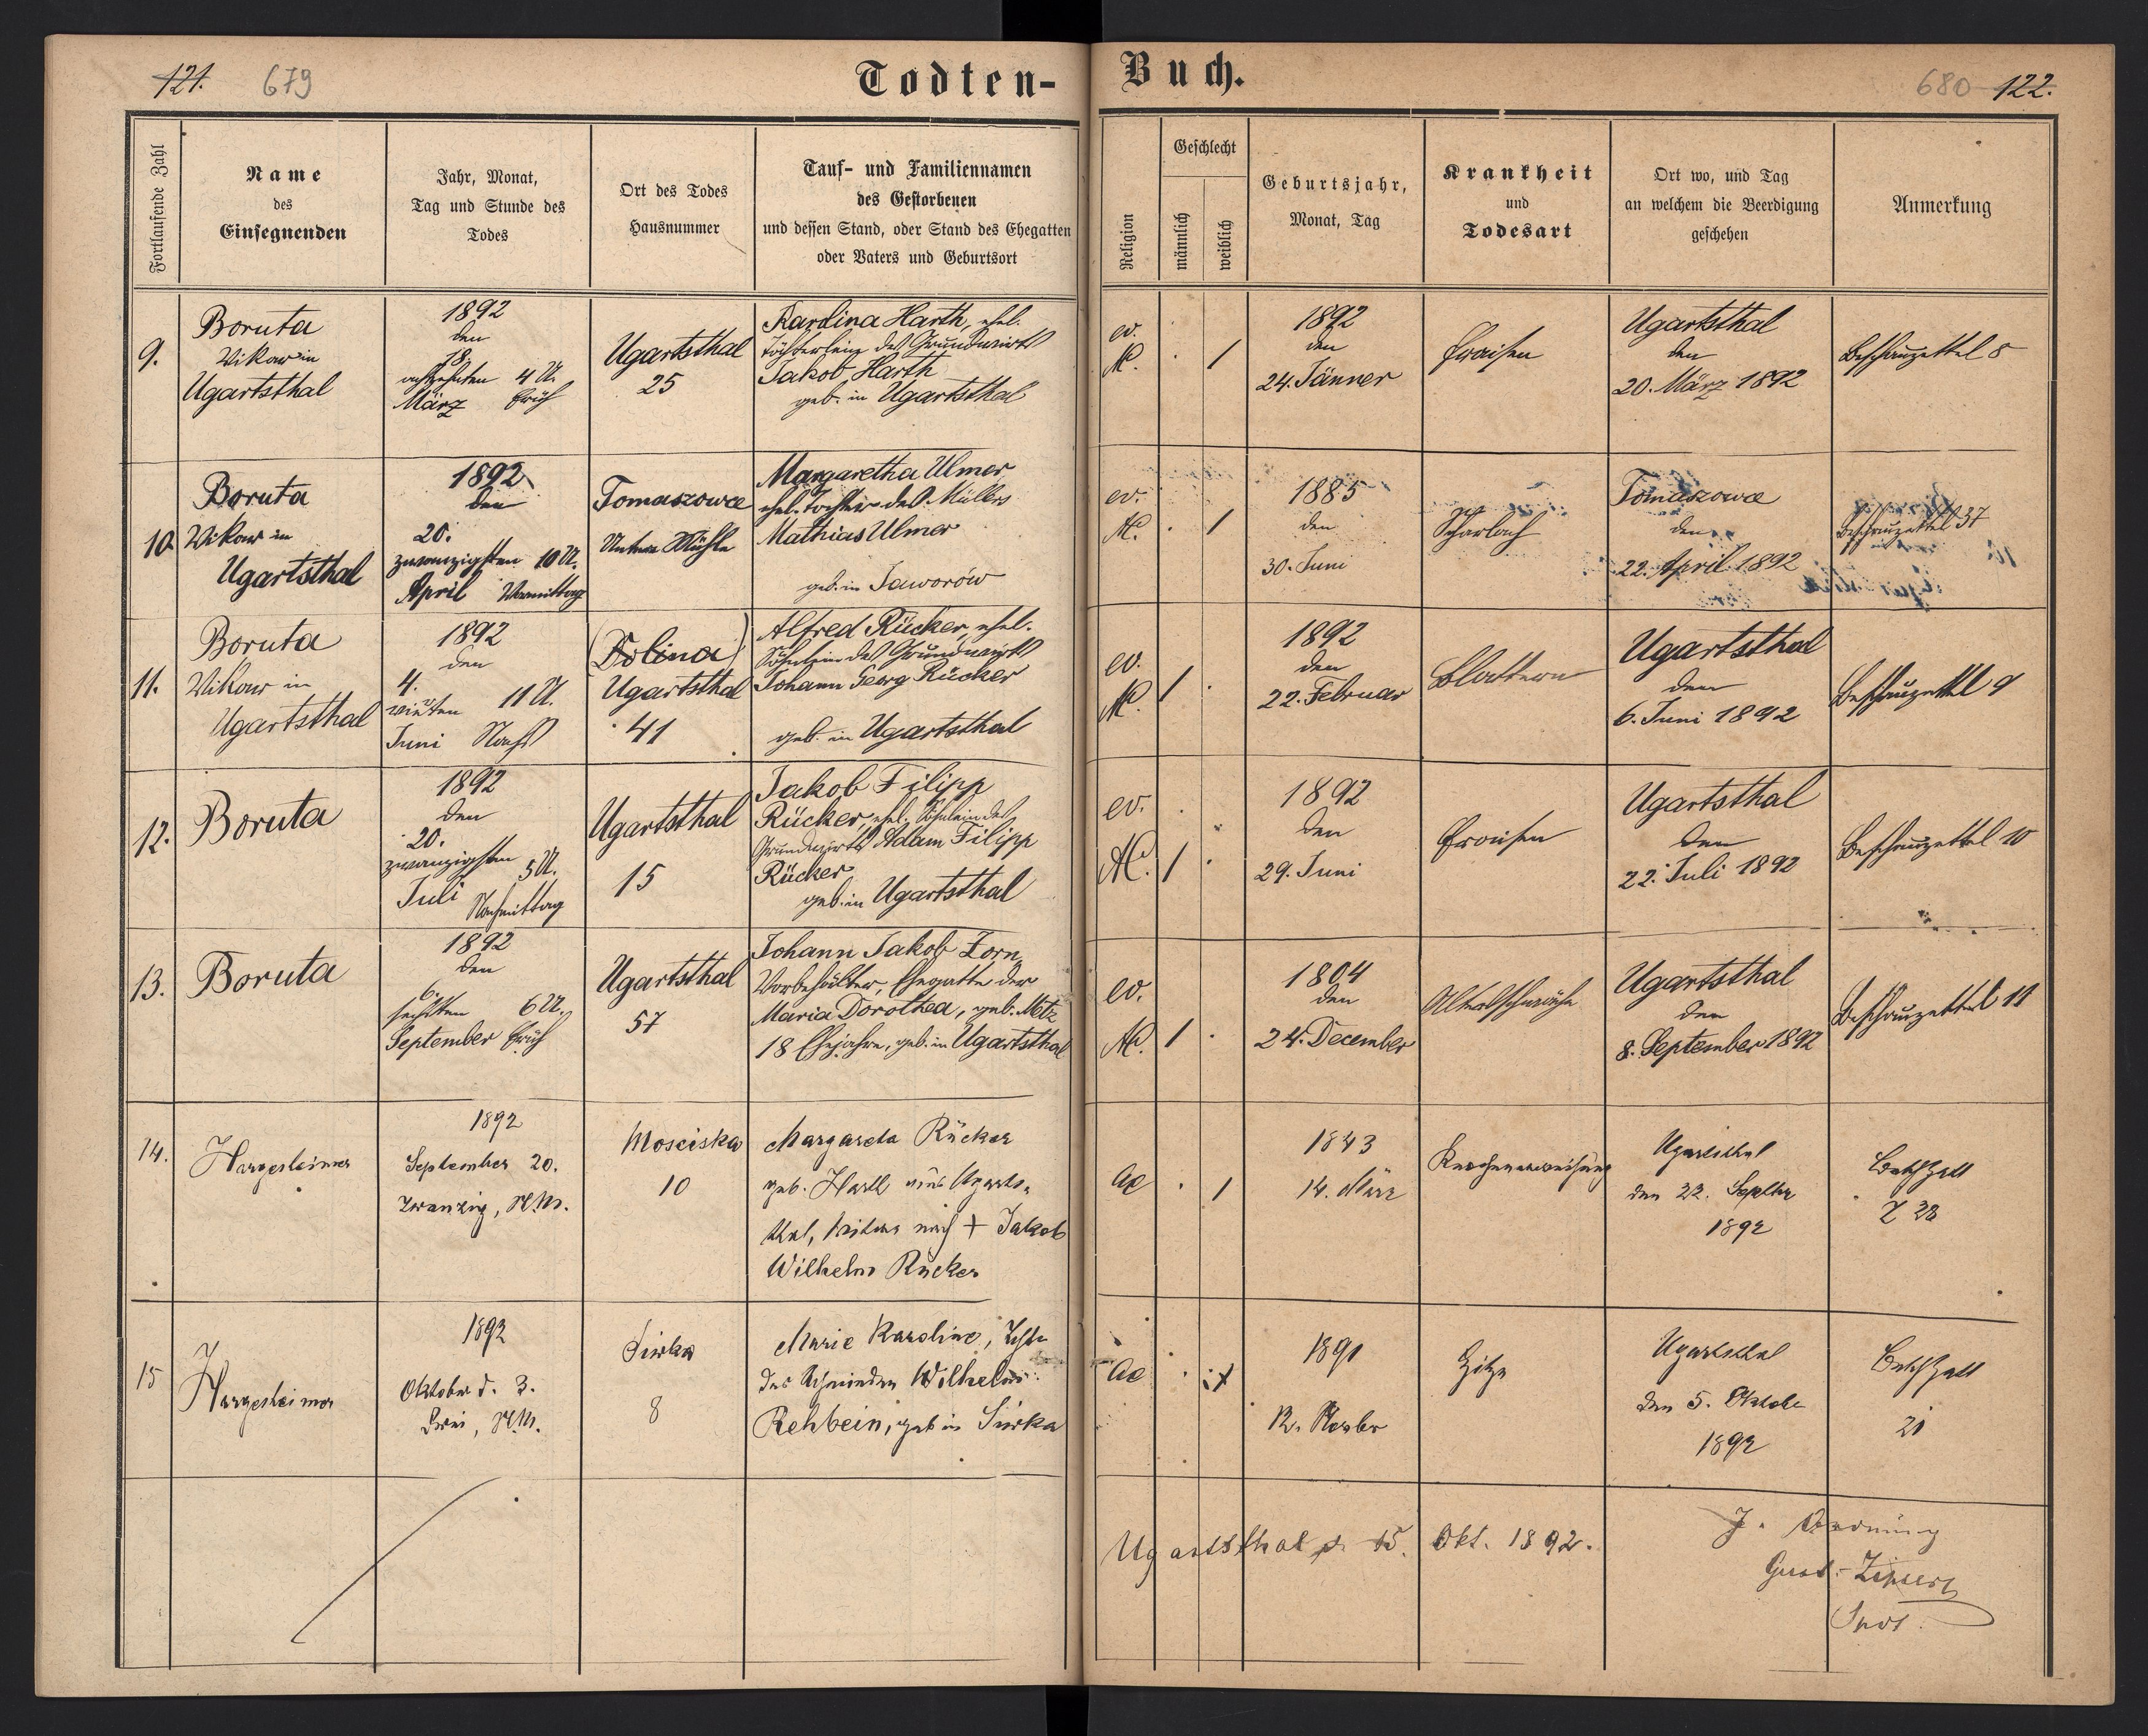 121. 679
Todten-
Fortlaufende Zahl
Name
des
Einsegnenden
Jahr, Monat,
Tag und Stunde des
Todes
Ort des Todes
Hausnummer
Tauf- und Familiennamen
des Gestorbenen
und dessen Stand, oder Stand des Ehegatten
oder Vaters und Geburtsort
9.
Boruta
Vikar in
Ugartsthal
1892
den
18.
achtzehnten 4 U.
März früh
Ugartsthal
25
Karolina Harth, ehel.
Töchterlein des Grundwirts
Jakob Harth
geb. in Ugartsthal
10.
Boruta
Vikar in
Ugartsthal
1892
den
20.
zwanzigsten 10 U.
April Vormittag
Tomaszowce
Untere Mühle
Margaretha Ulmer
ehel. Tochter des Müllers
Mathias Ulmer
geb. in Jaworów
11.
Boruta
Vikar in
Ugartsthal
1892
den
4.
vierten 11 U.
Juni Nachts
(Dolina)
Ugartsthal
41
Alfred Rücker, ehel.
Söhnlein des Grundwirts
Johann Georg Rücker
geb. in Ugartsthal
12.
Boruta
1892
den
20.
zwanzigsten 5 U.
Juli Nachmittag
Ugartsthal
15
Jakob Filipp
Rücker, ehel. Söhnlein des
Grundwirts Adam Filipp
Rücker
geb. in Ugartsthal
13.
Boruta
1892
den
6.
sechsten 6 U.
September früh
Ugartsthal
57
Johann Jakob Zorn
Vorbehälter, Ehegatte der
Maria Dorothea, geb. Metz
18 Ehejahre, geb. in Ugartsthal
14.
Hargesheimer
1892
September 20.
zwanzig, N.M.
Mosciska
10
Margareta Rücker
geb. Harth aus Ugarts-
thal, Witwe nach + Jakob
Wilhelm Rücker
15
Hargesheimer
1892
Oktober d. 3.
Drei, N.M.
Siwka
8
Marie Karoline,
des Wilhelm
Rehbein, geb in Siwka
Buch.
680 122.
Religion
Geschlecht
männlich
weiblich
Geburtsjahr,
Monat, Tag
Krankheit
und
Todesart
Ort wo, und Tag
an welchem die Beerdigung
geschehen
Anmerkung
ev.
1
1892
den
24. Jänner
Fraisen
Ugartsthal
den
20. März 1892
Beschauzettel 8
ev.
1
1885
den
30. Juni
Scharlach
Tomaszowce
den
22. April 1892
Beschauzettel 37
ev.
1
1892
den
22. Februar
Blattern
Ugartsthal
den
6. Juni 1892
Beschauzettel 9
ev.
1
1892
den
29. Juni
Fraisen
Ugartsthal
den
22. Juli 1892
Beschauzettel 10
ev.
1
1804
den
24. December
Altersschwäche
Ugartsthal
den
8. September 1892
Beschauzettel 11
1
1843
14. März
Ugartsthal
den 22. Septbr
1892
1891
12. Novbr
Ugartsthal
den 5. Oktobe
1892
Ugartsthal d. 15. Okt. 1892.